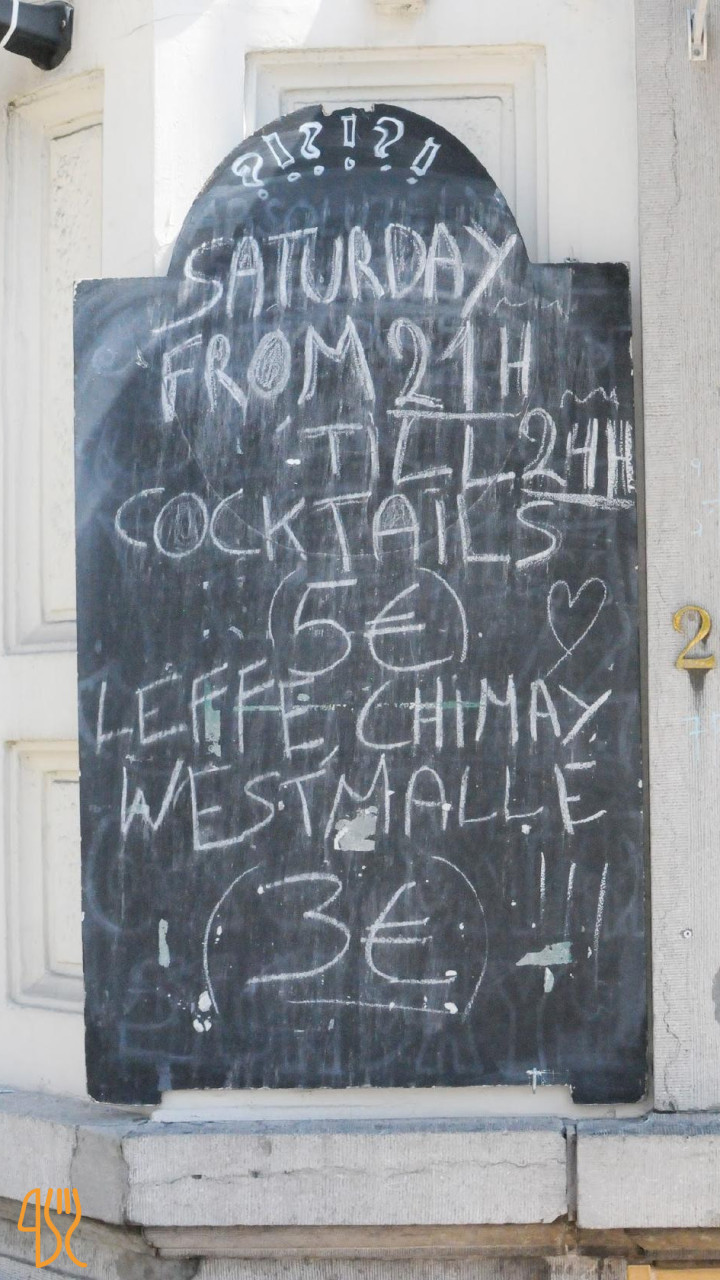 ?!?!?!
SATURDAY
FROM 21H
TILL 24H
COCKTAILS
(5€)
LEFFE, CHIMAY
WESTMALLE
(3€) !!!
2